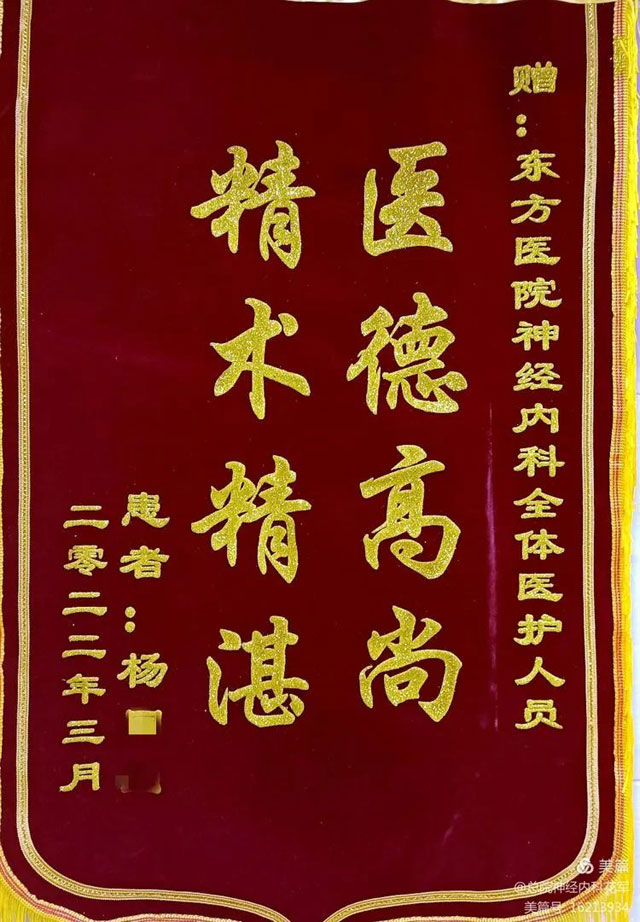 赠：东方医院神经内科全体医护人员
医德高尚
精术精湛
患者：杨
二零二二年三月
美篇
@总院神经内科
美篇号: 16213934